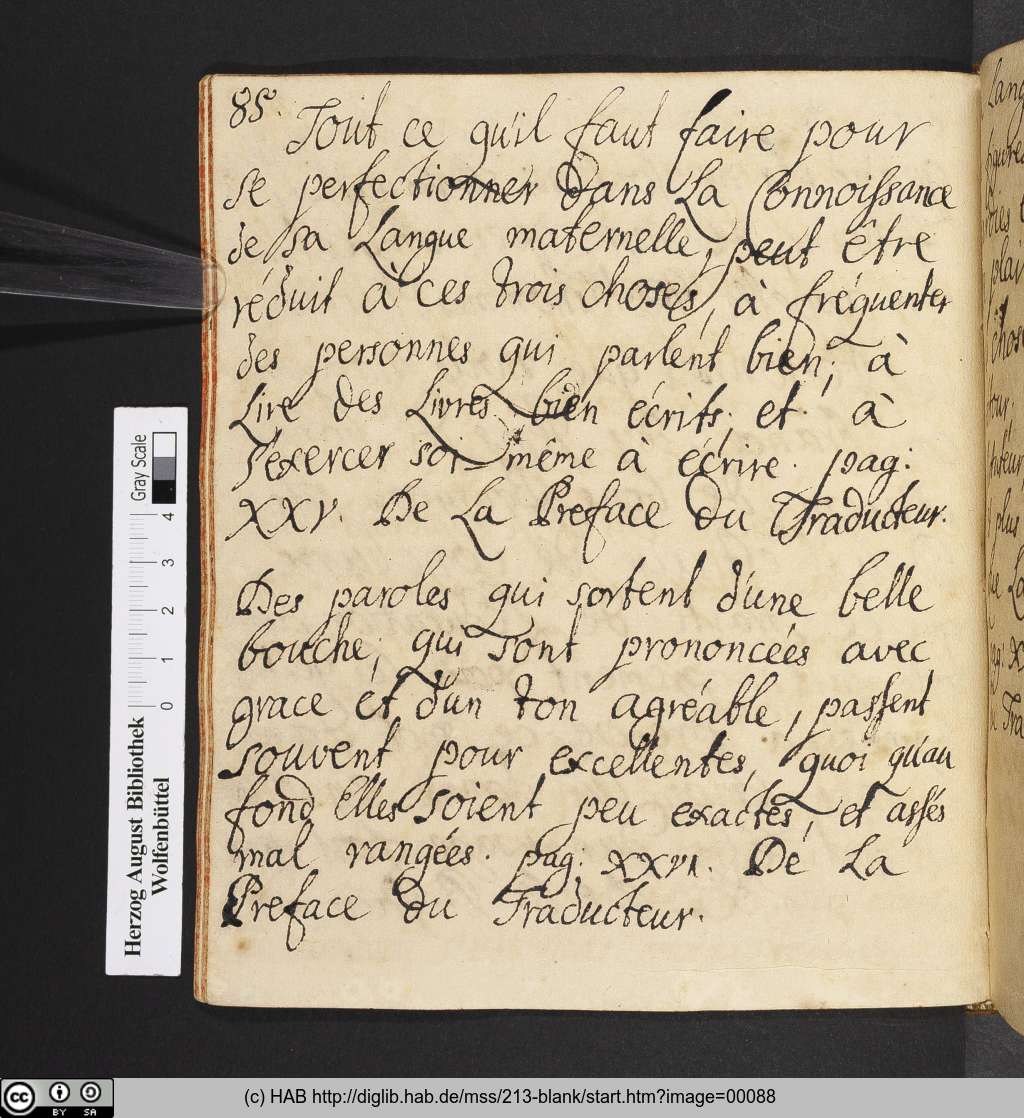 85.
Tout ce qu'il faut faire pour
se perfectionner dans La Connoissance
de sa Langue maternelle, peut être
réduit à ces trois choses, à fréquenter
des personnes qui parlent bien; à
Lire des Livres bien écrits; et à
s'exercer soi-même à écrire. pag:
XXV. De La Preface du Traducteur.
Des paroles qui sortent d'une belle
bouche; qui sont prononcées avec
grace et d'un ton agréable, passent
souvent pour excellentes, quoi qu'au
fond Elles soient peu exactes, et assés
mal rangées. pag: XXVI. De La
Preface du Traducteur.
Gray Scale
0 1 2 3 4
Herzog August Bibliothek
Wolfenbüttel
cc BY SA
(c) HAB http://diglib.hab.de/mss/213-blank/start.htm?image=00088